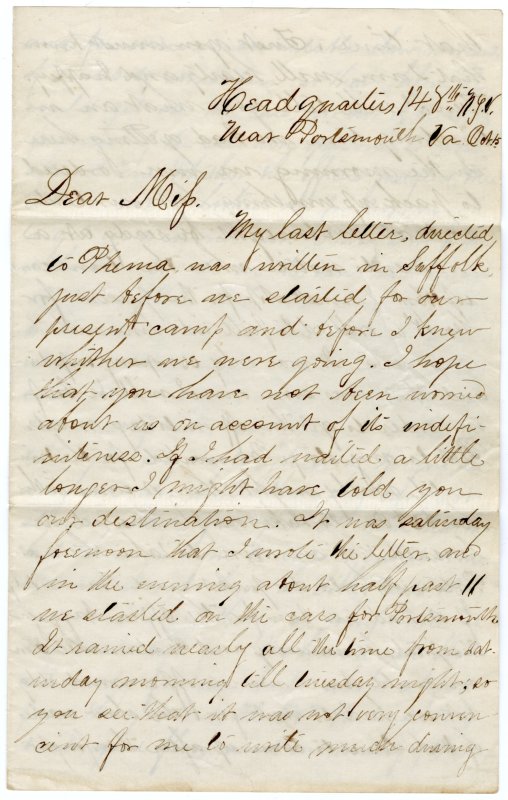 Headquarters 148th N.Y.V.
Near Portsmouth Va. Oct 15
Dear Miss.
My last letter, directed
to Phema, was written in Suffolk,
just before we started for our
present camp and before I knew
whither we were going. I hope
that you have not been worried
about us on account of its indefi-
niteness. If I had waited a little
longer I might have told you
our destination. It was saturday
forenoon that I wrote the letter, and
in the evening about half past 11
we started on the cars for Portsmouth.
It rained nearly all the time from sat-
urday morning till tuesday night; so
you see that it was not very conven-
cient for me to write much during